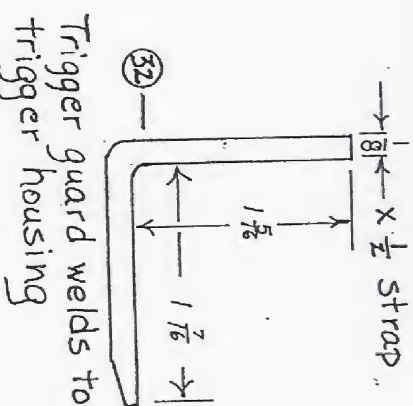 1/8 X 1/2 strap
1 5/16
1 7/16
32
Trigger guard welds to
trigger housing